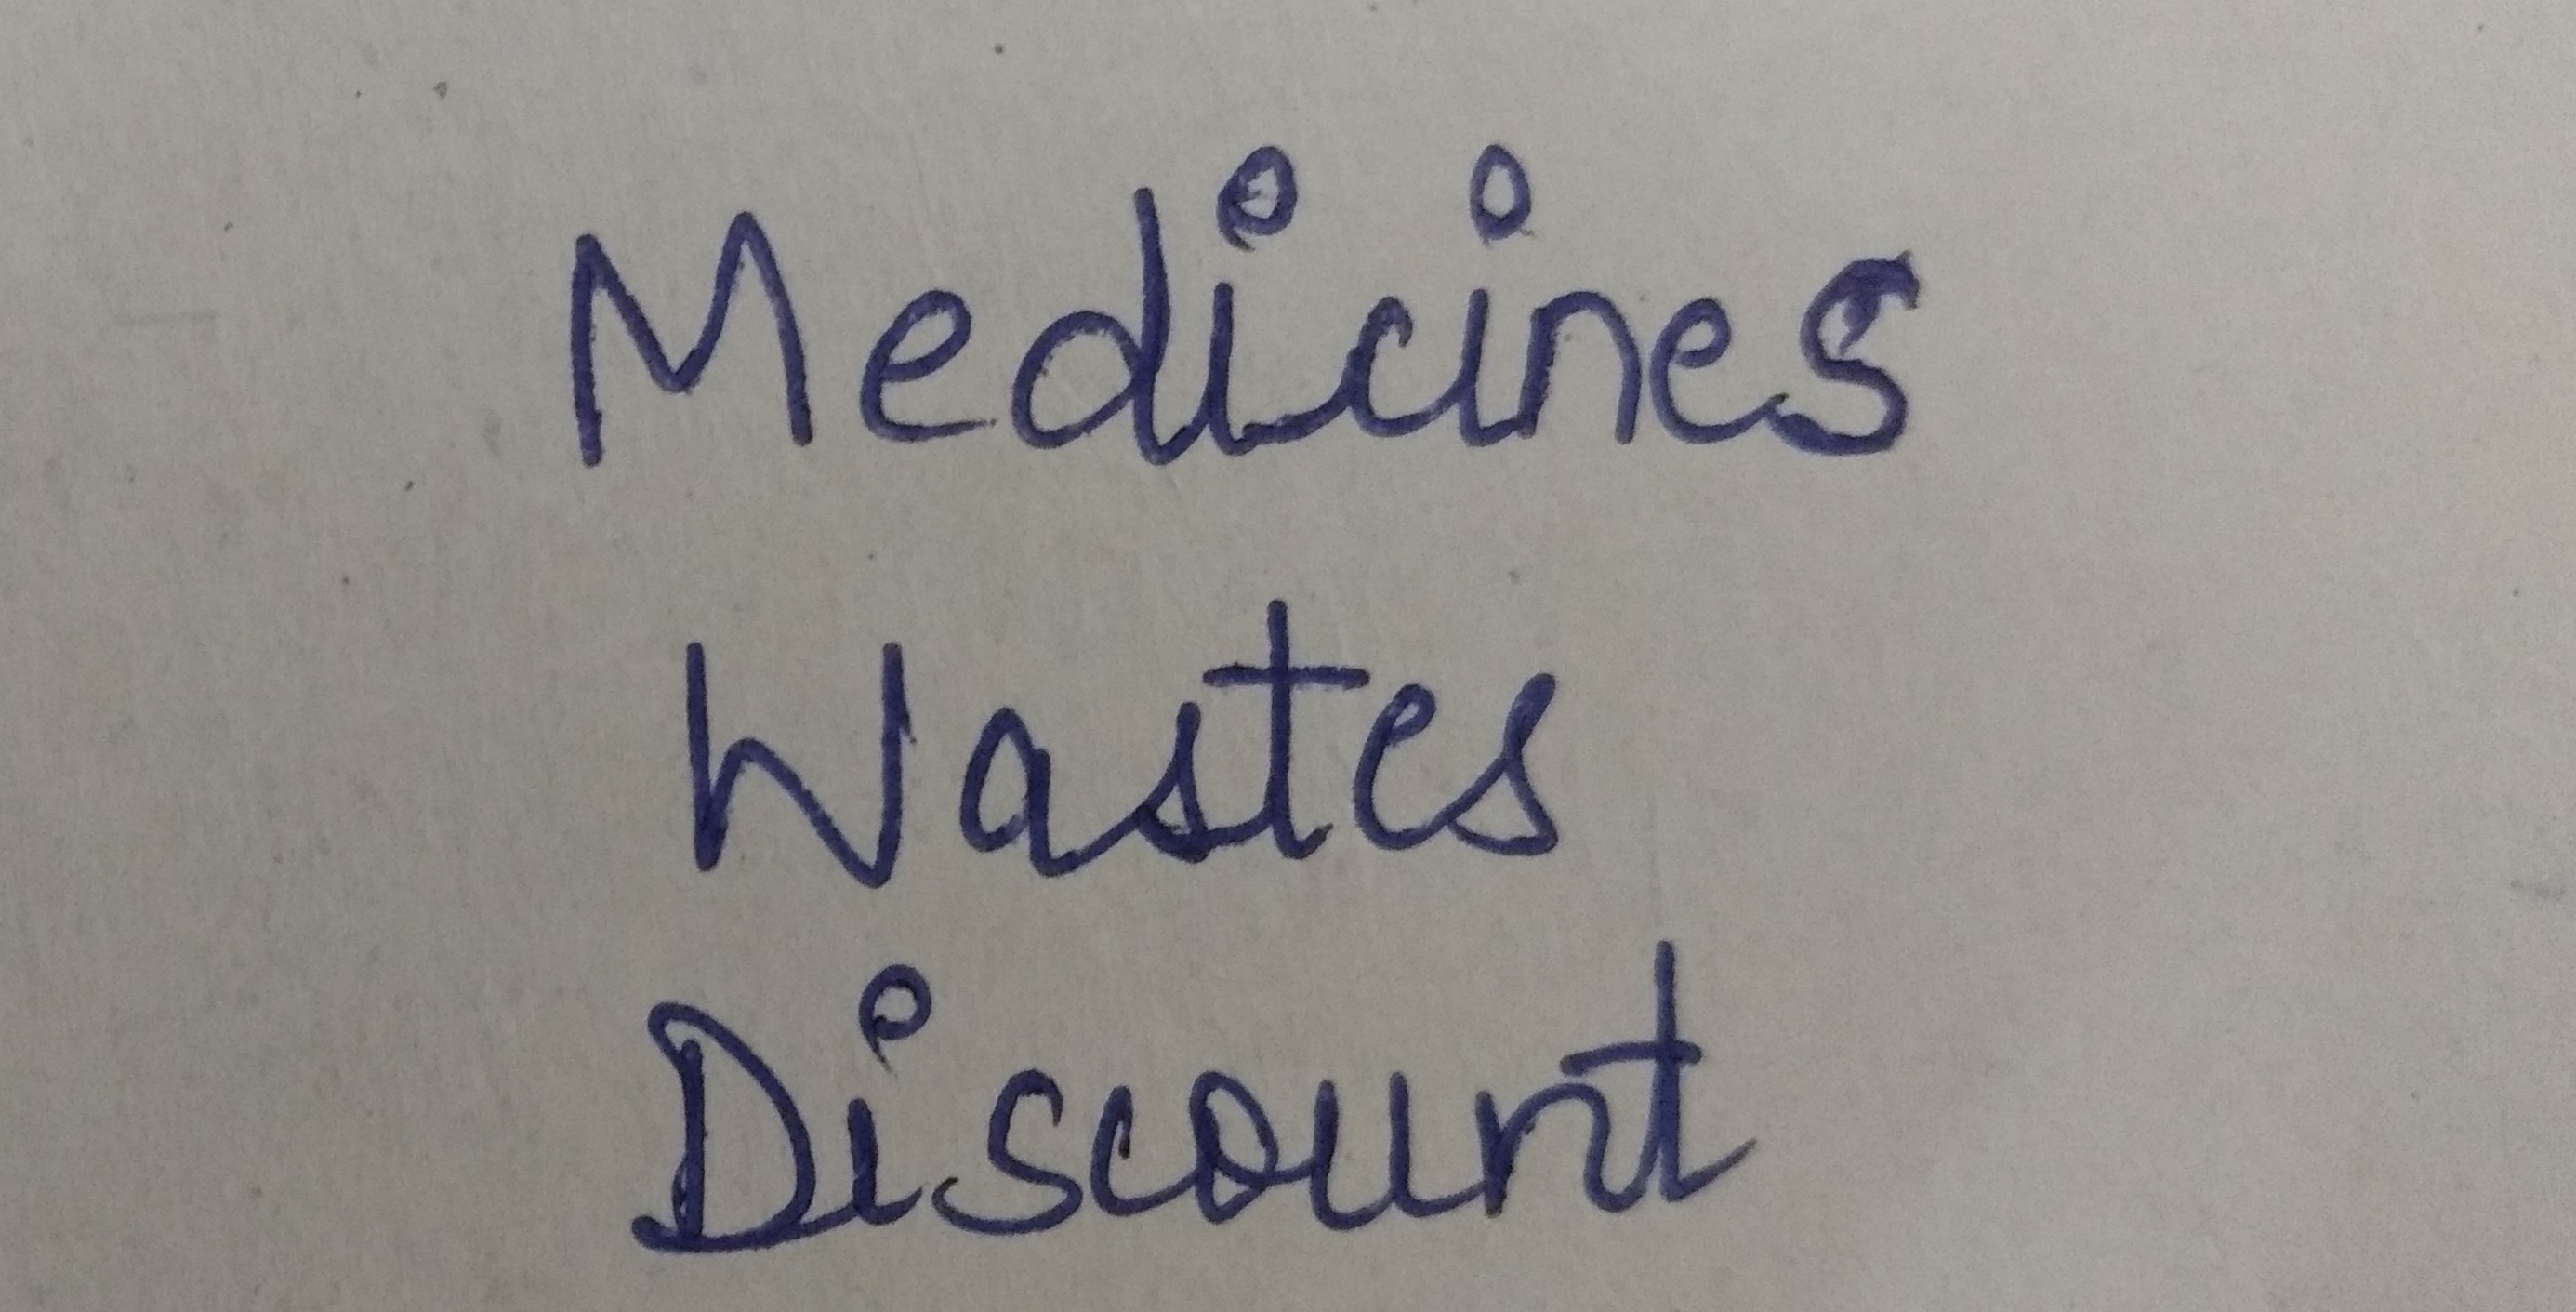 Medicines
Wastes
Discount